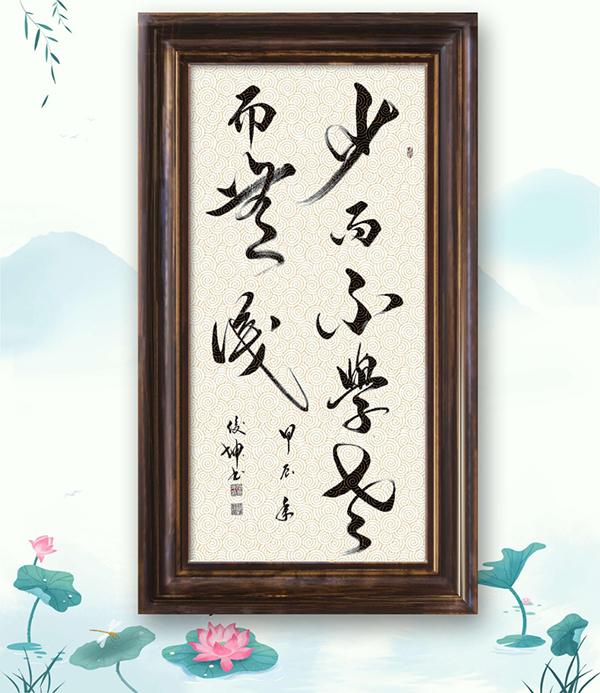 少而不學老
而無識
甲辰年
俊坤书